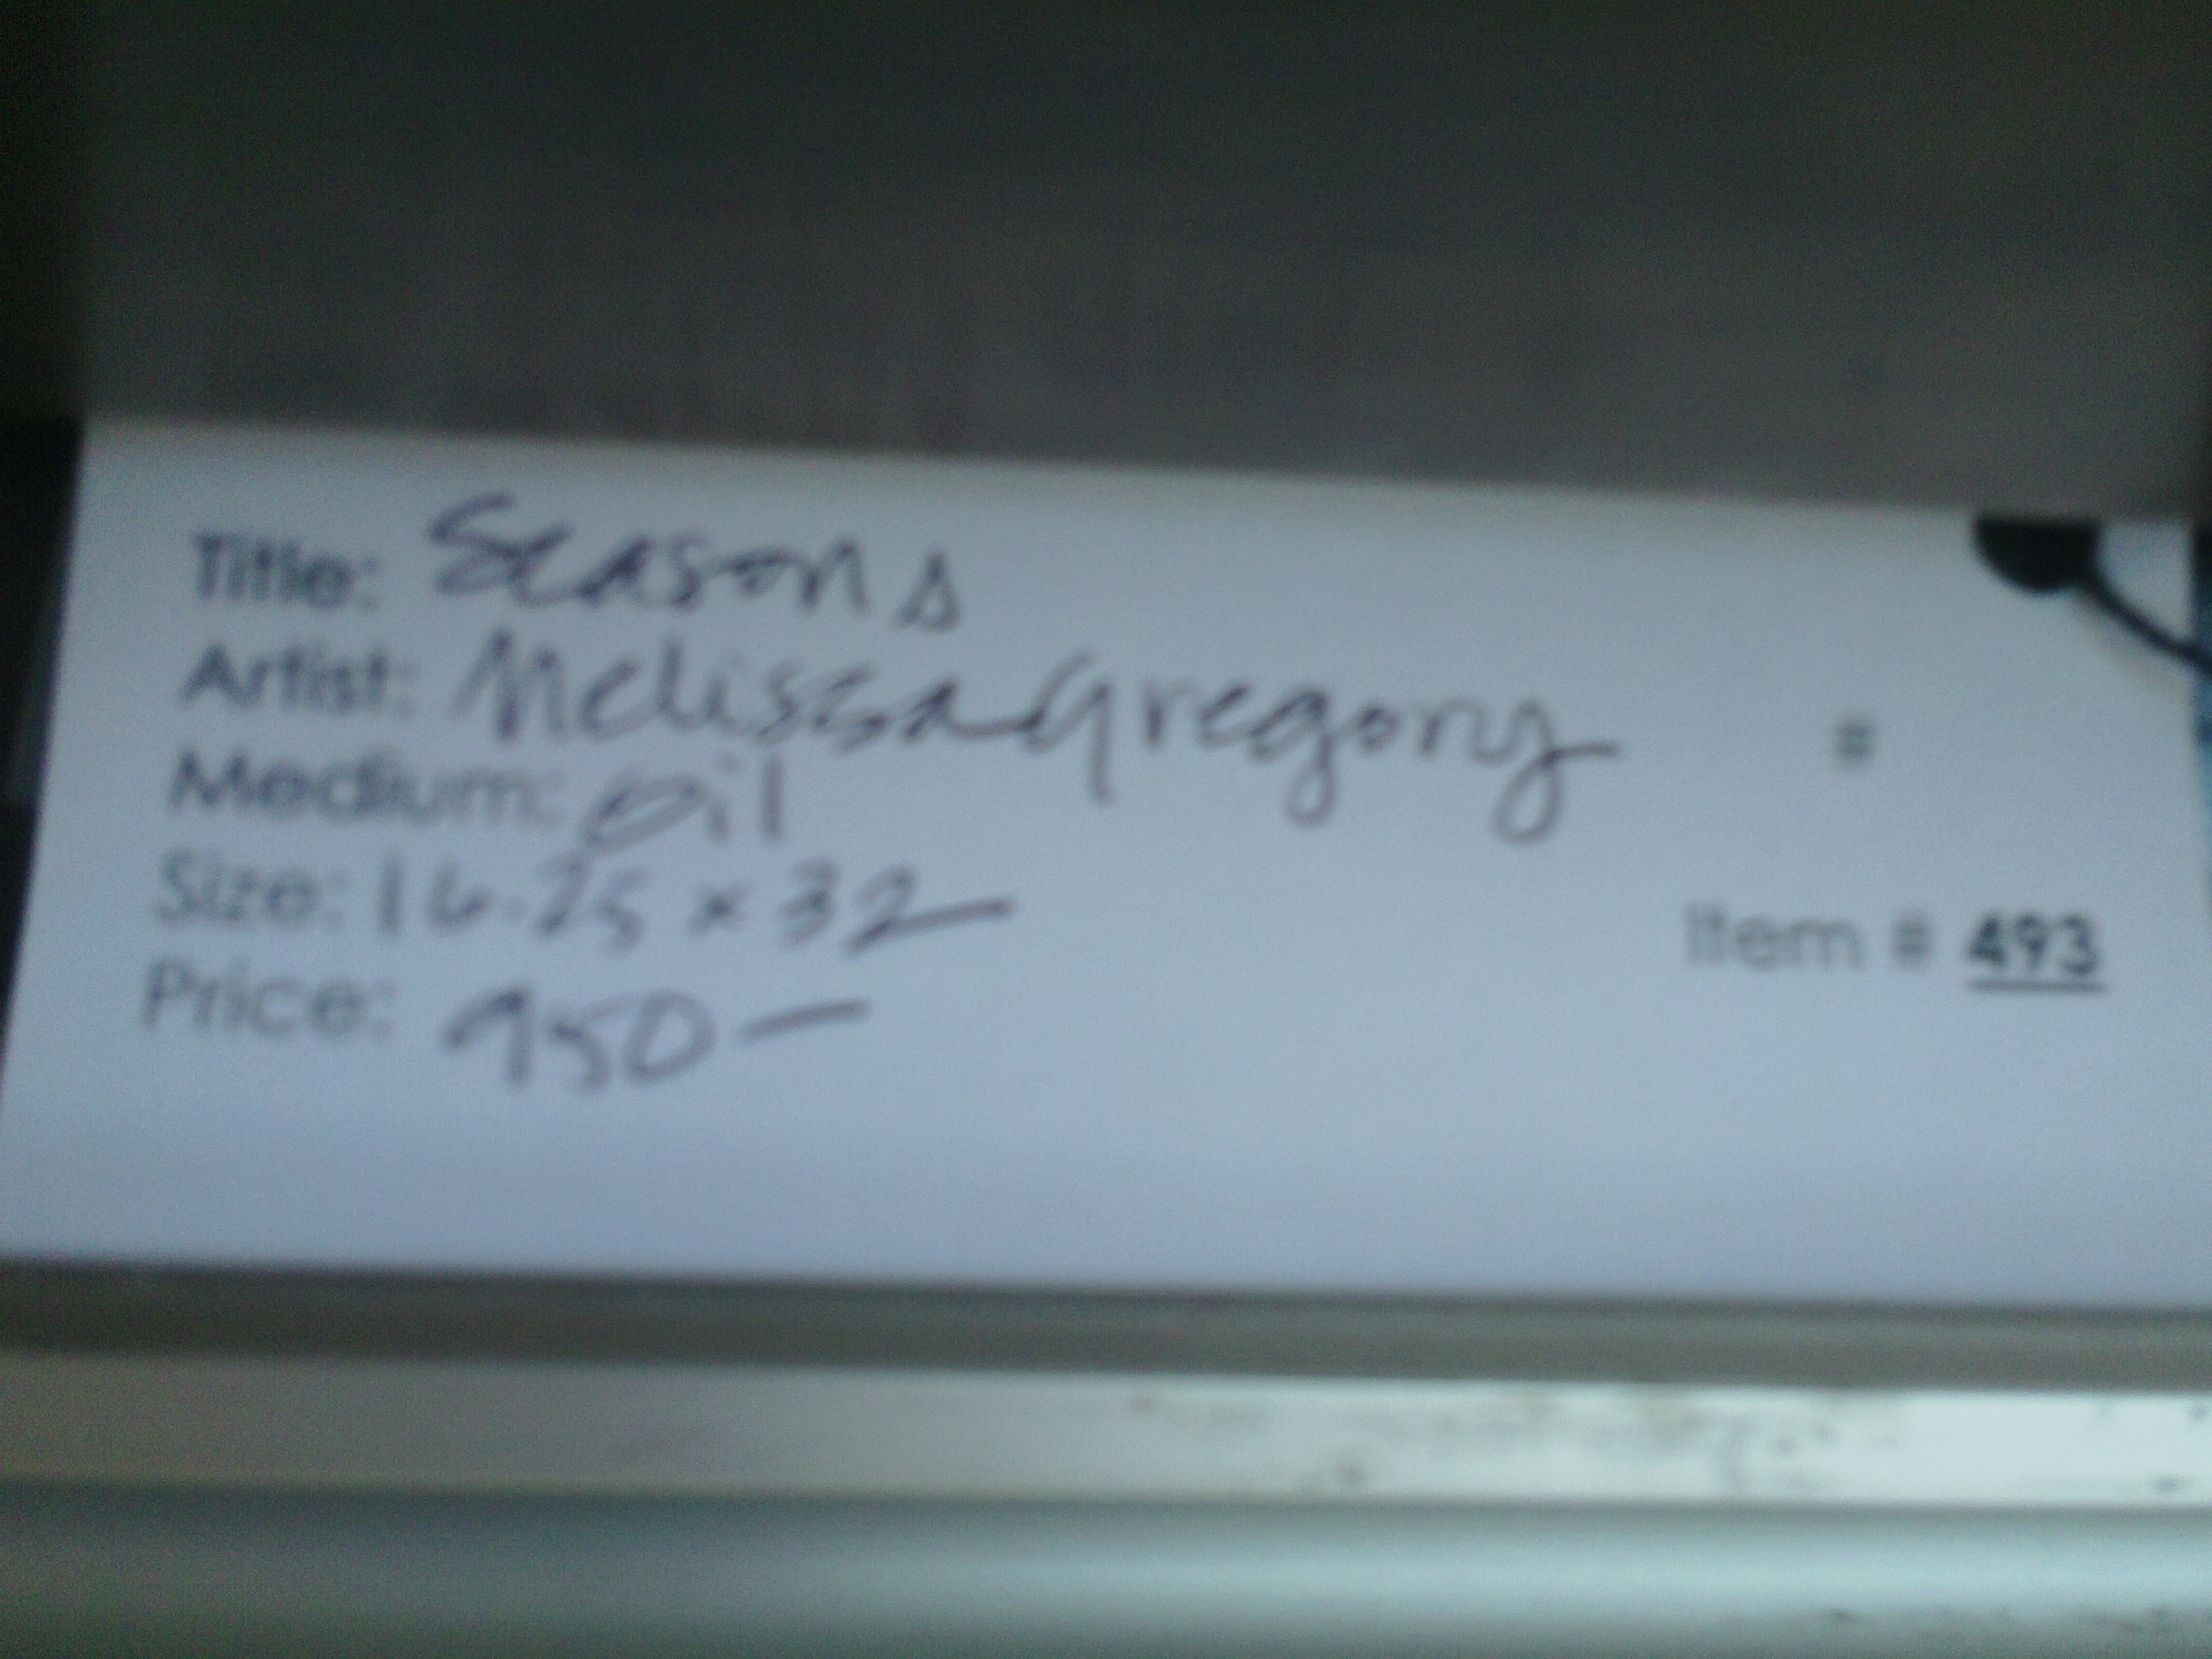 Title: Seasons
Artist: Melissa Gregory #
Medium: oil
Size: 16.25 x 32
Item # 493
Price: 950 —